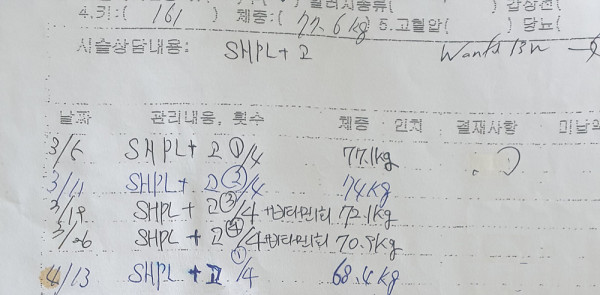 4.키:( 161 ) 체중:( 77.6kg ) 5.고혈압( ) 당뇨(
시술상담내용: SHPL + 고 Wants
날짜 관리내용, 횟수 체중 · 인치 결재사항 미납
3/6 SHPL + 고 ①/4 77.1kg
3/11 SHPL + 고 ②/4 74kg
3/19 SHPL + 고 ③/4 +비타민1회 72.1kg
3/26 SHPL + 고 ④/4 +비타민1회 70.5kg
4/13 SHPL + 고 ①/4 68.4kg